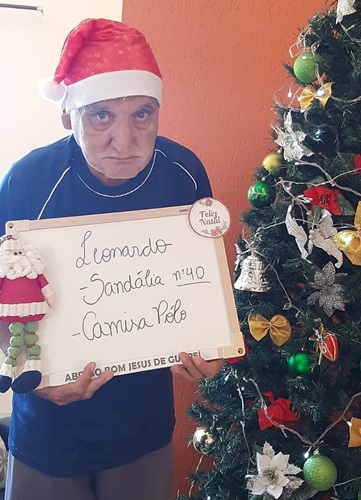 Feliz
Natal
Leonardo
-Sandália nº:40
-Camisa Pólo
BOM JESUS DE